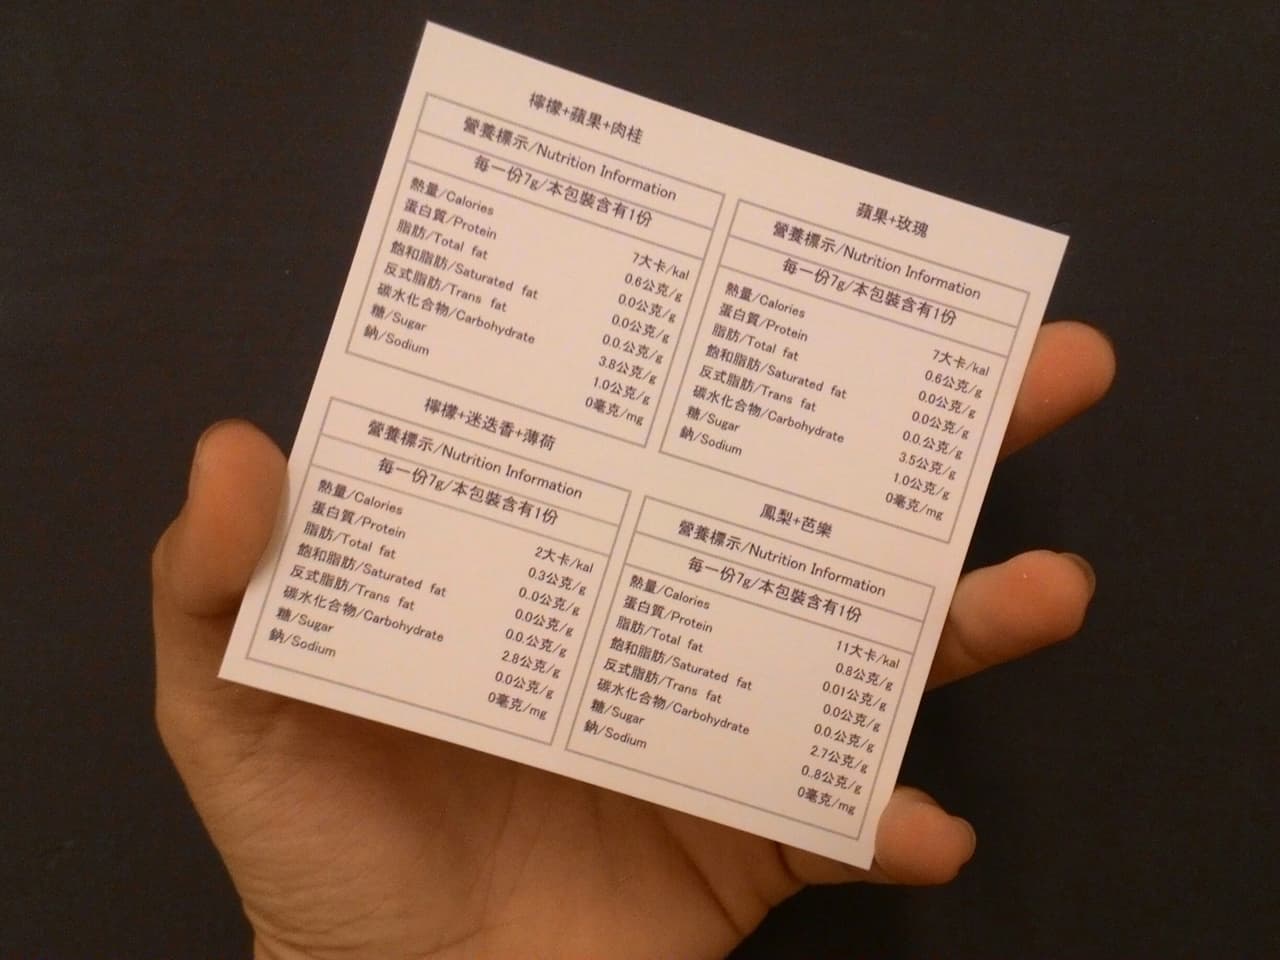 檸檬+蘋果+肉桂
營養標示/Nutrition Information
每一份7g/本包裝含有1份
熱量/Calories 7大卡/kal
蛋白質/Protein 0.6公克/g
脂肪/Total fat 0.0公克/g
飽和脂肪/Saturated fat 0.0公克/g
反式脂肪/Trans fat 0.0.公克/g
碳水化合物/Carbohydrate 3.8公克/g
糖/Sugar 1.0公克/g
鈉/Sodium 0毫克/mg
蘋果+玫瑰
營養標示/Nutrition Information
每一份7g/本包裝含有1份
熱量/Calories 7大卡/kal
蛋白質/Protein 0.6公克/g
脂肪/Total fat 0.0公克/g
飽和脂肪/Saturated fat 0.0公克/g
反式脂肪/Trans fat 0.0.公克/g
碳水化合物/Carbohydrate 3.5公克/g
糖/Sugar 1.0公克/g
鈉/Sodium 0毫克/mg
檸檬+迷迭香+薄荷
營養標示/Nutrition Information
每一份7g/本包裝含有1份
熱量/Calories 2大卡/kal
蛋白質/Protein 0.3公克/g
脂肪/Total fat 0..0公克/g
飽和脂肪/Saturated fat 0.0公克/g
反式脂肪/Trans fat 0.0.公克/g
碳水化合物/Carbohydrate 2.8公克/g
糖/Sugar 0.0公克/g
鈉/Sodium 0毫克/mg
鳳梨+芭樂
營養標示/Nutrition Information
每一份7g/本包裝含有1份
熱量/Calories 11大卡/kal
蛋白質/Protein 0.8公克/g
脂肪/Total fat 0.01公克/g
飽和脂肪/Saturated fat 0.0公克/g
反式脂肪/Trans fat 0.0.公克/g
碳水化合物/Carbohydrate 2.7公克/g
糖/Sugar 0..8公克/g
鈉/Sodium 0毫克/mg